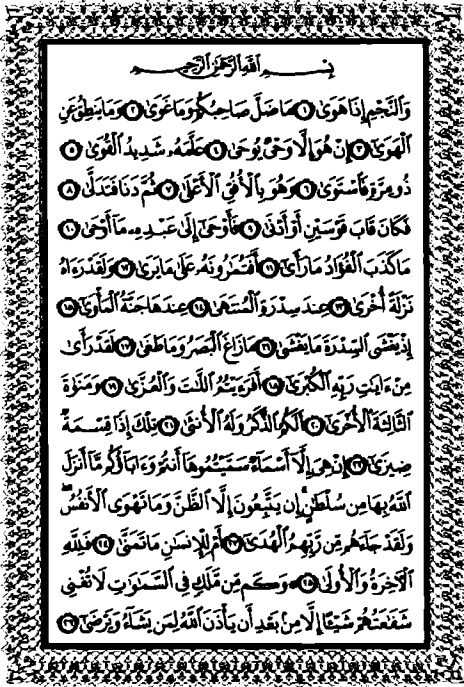 بِسْمِ اللَّهِ الرَّحْمَٰنِ الرَّحِيمِ
وَالنَّجْمِ إِذَا هَوَىٰ ۝١ مَا ضَلَّ صَاحِبُكُمْ وَمَا غَوَىٰ ۝٢ وَمَا يَنطِقُ عَنِ
الْهَوَىٰ ۝٣ إِنْ هُوَ إِلَّا وَحْيٌ يُوحَىٰ ۝٤ عَلَّمَهُ شَدِيدُ الْقُوَىٰ ۝٥
ذُو مِرَّةٍ فَاسْتَوَىٰ ۝٦ وَهُوَ بِالْأُفُقِ الْأَعْلَىٰ ۝٧ ثُمَّ دَنَا فَتَدَلَّىٰ ۝٨
فَكَانَ قَابَ قَوْسَيْنِ أَوْ أَدْنَىٰ ۝٩ فَأَوْحَىٰ إِلَىٰ عَبْدِهِ مَا أَوْحَىٰ ۝١٠
مَا كَذَبَ الْفُؤَادُ مَا رَأَىٰ ۝١١ أَفَتُمَارُونَهُ عَلَىٰ مَا يَرَىٰ ۝١٢ وَلَقَدْ رَآهُ
نَزْلَةً أُخْرَىٰ ۝١٣ عِندَ سِدْرَةِ الْمُنتَهَىٰ ۝١٤ عِندَهَا جَنَّةُ الْمَأْوَىٰ ۝١٥
إِذْ يَغْشَى السِّدْرَةَ مَا يَغْشَىٰ ۝١٦ مَا زَاغَ الْبَصَرُ وَمَا طَغَىٰ ۝١٧ لَقَدْ رَأَىٰ
مِنْ آيَاتِ رَبِّهِ الْكُبْرَىٰ ۝١٨ أَفَرَأَيْتُمُ اللَّاتَ وَالْعُزَّىٰ ۝١٩ وَمَنَاةَ
الثَّالِثَةَ الْأُخْرَىٰ ۝٢٠ أَلَكُمُ الذَّكَرُ وَلَهُ الْأُنثَىٰ ۝٢١ تِلْكَ إِذًا قِسْمَةٌ
ضِيزَىٰ ۝٢٢ إِنْ هِيَ إِلَّا أَسْمَاءٌ سَمَّيْتُمُوهَا أَنتُمْ وَآبَاؤُكُم مَّا أَنزَلَ
اللَّهُ بِهَا مِن سُلْطَانٍ إِن يَتَّبِعُونَ إِلَّا الظَّنَّ وَمَا تَهْوَى الْأَنفُسُ
وَلَقَدْ جَاءَهُم مِّن رَّبِّهِمُ الْهُدَىٰ ۝٢٣ أَمْ لِلْإِنسَانِ مَا تَمَنَّىٰ ۝٢٤ فَلِلَّهِ
الْآخِرَةُ وَالْأُولَىٰ ۝٢٥ وَكَم مِّن مَّلَكٍ فِي السَّمَاوَاتِ لَا تُغْنِي
شَفَاعَتُهُمْ شَيْئًا إِلَّا مِن بَعْدِ أَن يَأْذَنَ اللَّهُ لِمَن يَشَاءُ وَيَرْضَىٰ ۝٢٦